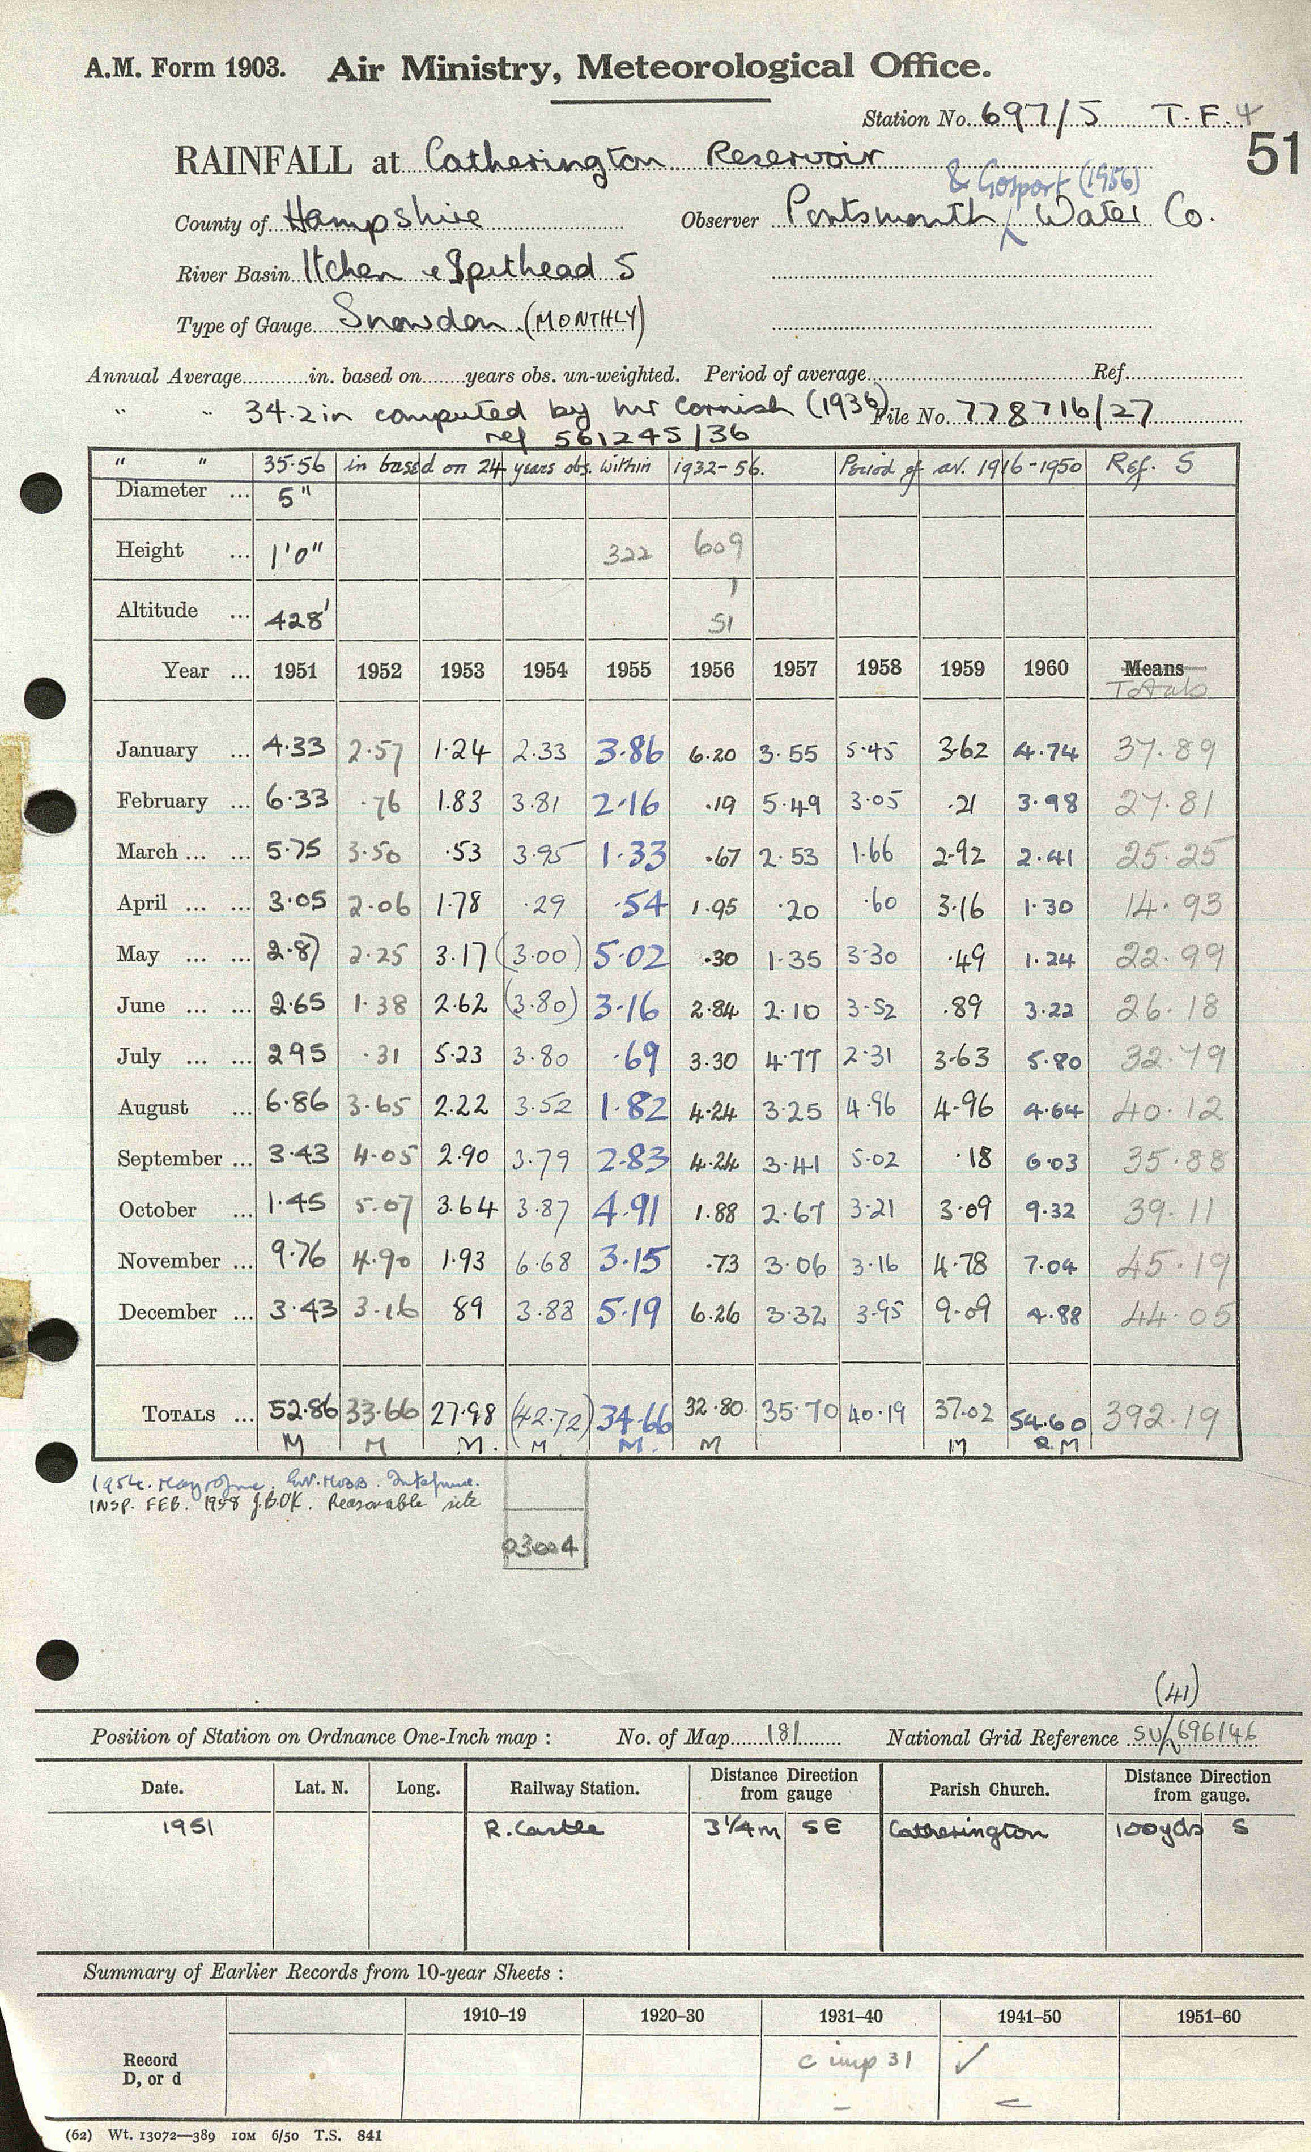 A.M. Form 1903. Air Ministry, Meteorological Office.
Station No. 697/5 T.F.4
51
RAINFALL at Catherington Reservoir
& Gosport (1956)
County of Hampshire Observer Portsmouth Water Co.
River Basin Itchen & Spithead 5
Type of Gauge Snowdon (MONTHLY)
Annual Average in. based on years obs. un-weighted. Period of average Ref.
" " 34.2in computed by Mr Cornish (1936) File No. 778716/27
ref 561245/36
" " 35.56 in based on 24 years obs. within 1932-56. Period of av. 1916-1950 Ref. S
Diameter ... 5"
Height ... 1'0" 322 609
Altitude ... 428' 1
51
Year ... 1951 1952 1953 1954 1955 1956 1957 1958 1959 1960 Means
Totals
January ... 4.33 2.57 1.24 2.33 3.86 6.20 3.55 5.45 3.62 4.74 37.89
February ... 6.33 .76 1.83 3.81 2.16 .19 5.49 3.05 .21 3.98 27.81
March ... ... 5.75 3.50 .53 3.95 1.33 .67 2.53 1.66 2.92 2.41 25.25
April ... ... 3.05 2.06 1.78 .29 .54 1.95 .20 .60 3.16 1.30 14.93
May ... ... 2.87 2.25 3.17 (3.00) 5.02 .30 1.35 3.30 .49 1.24 22.99
June ... ... 2.65 1.38 2.62 (3.80) 3.16 2.84 2.10 3.52 .89 3.22 26.18
July ... ... 2.95 .31 5.23 3.80 .69 3.30 4.77 2.31 3.63 5.80 32.79
August ... 6.86 3.65 2.22 3.52 1.82 4.24 3.25 4.96 4.96 4.64 40.12
September ... 3.43 4.05 2.90 3.79 2.83 4.24 3.41 5.02 .18 6.03 35.88
October ... 1.45 5.07 3.64 3.87 4.91 1.88 2.67 3.21 3.09 9.32 39.11
November ... 9.76 4.90 1.93 6.68 3.15 .73 3.06 3.16 4.78 7.04 45.19
December ... 3.43 3.16 89 3.88 5.19 6.26 3.32 3.95 9.09 4.88 44.05
TOTALS ... 52.86 33.66 27.98 (42.72) 34.66 32.80 35.70 40.19 37.02 54.60 392.19
M M M. M. M. M M R M
1954. May & June
INSP. FEB. 1958 Reasonable site
03004
(41)
Position of Station on Ordnance One-Inch map : No. of Map 181 National Grid Reference SU/696146
Date. Lat. N. Long. Railway Station. Distance Direction from gauge Parish Church. Distance Direction from gauge.
1951 R. Castle 3¼m SE Catherington 100yds S
Summary of Earlier Records from 10-year Sheets :
1910–19 1920–30 1931–40 1941–50 1951–60
Record D, or d c imp 31 ✓
(62) Wt. 13072—389 10M 6/50 T.S. 841